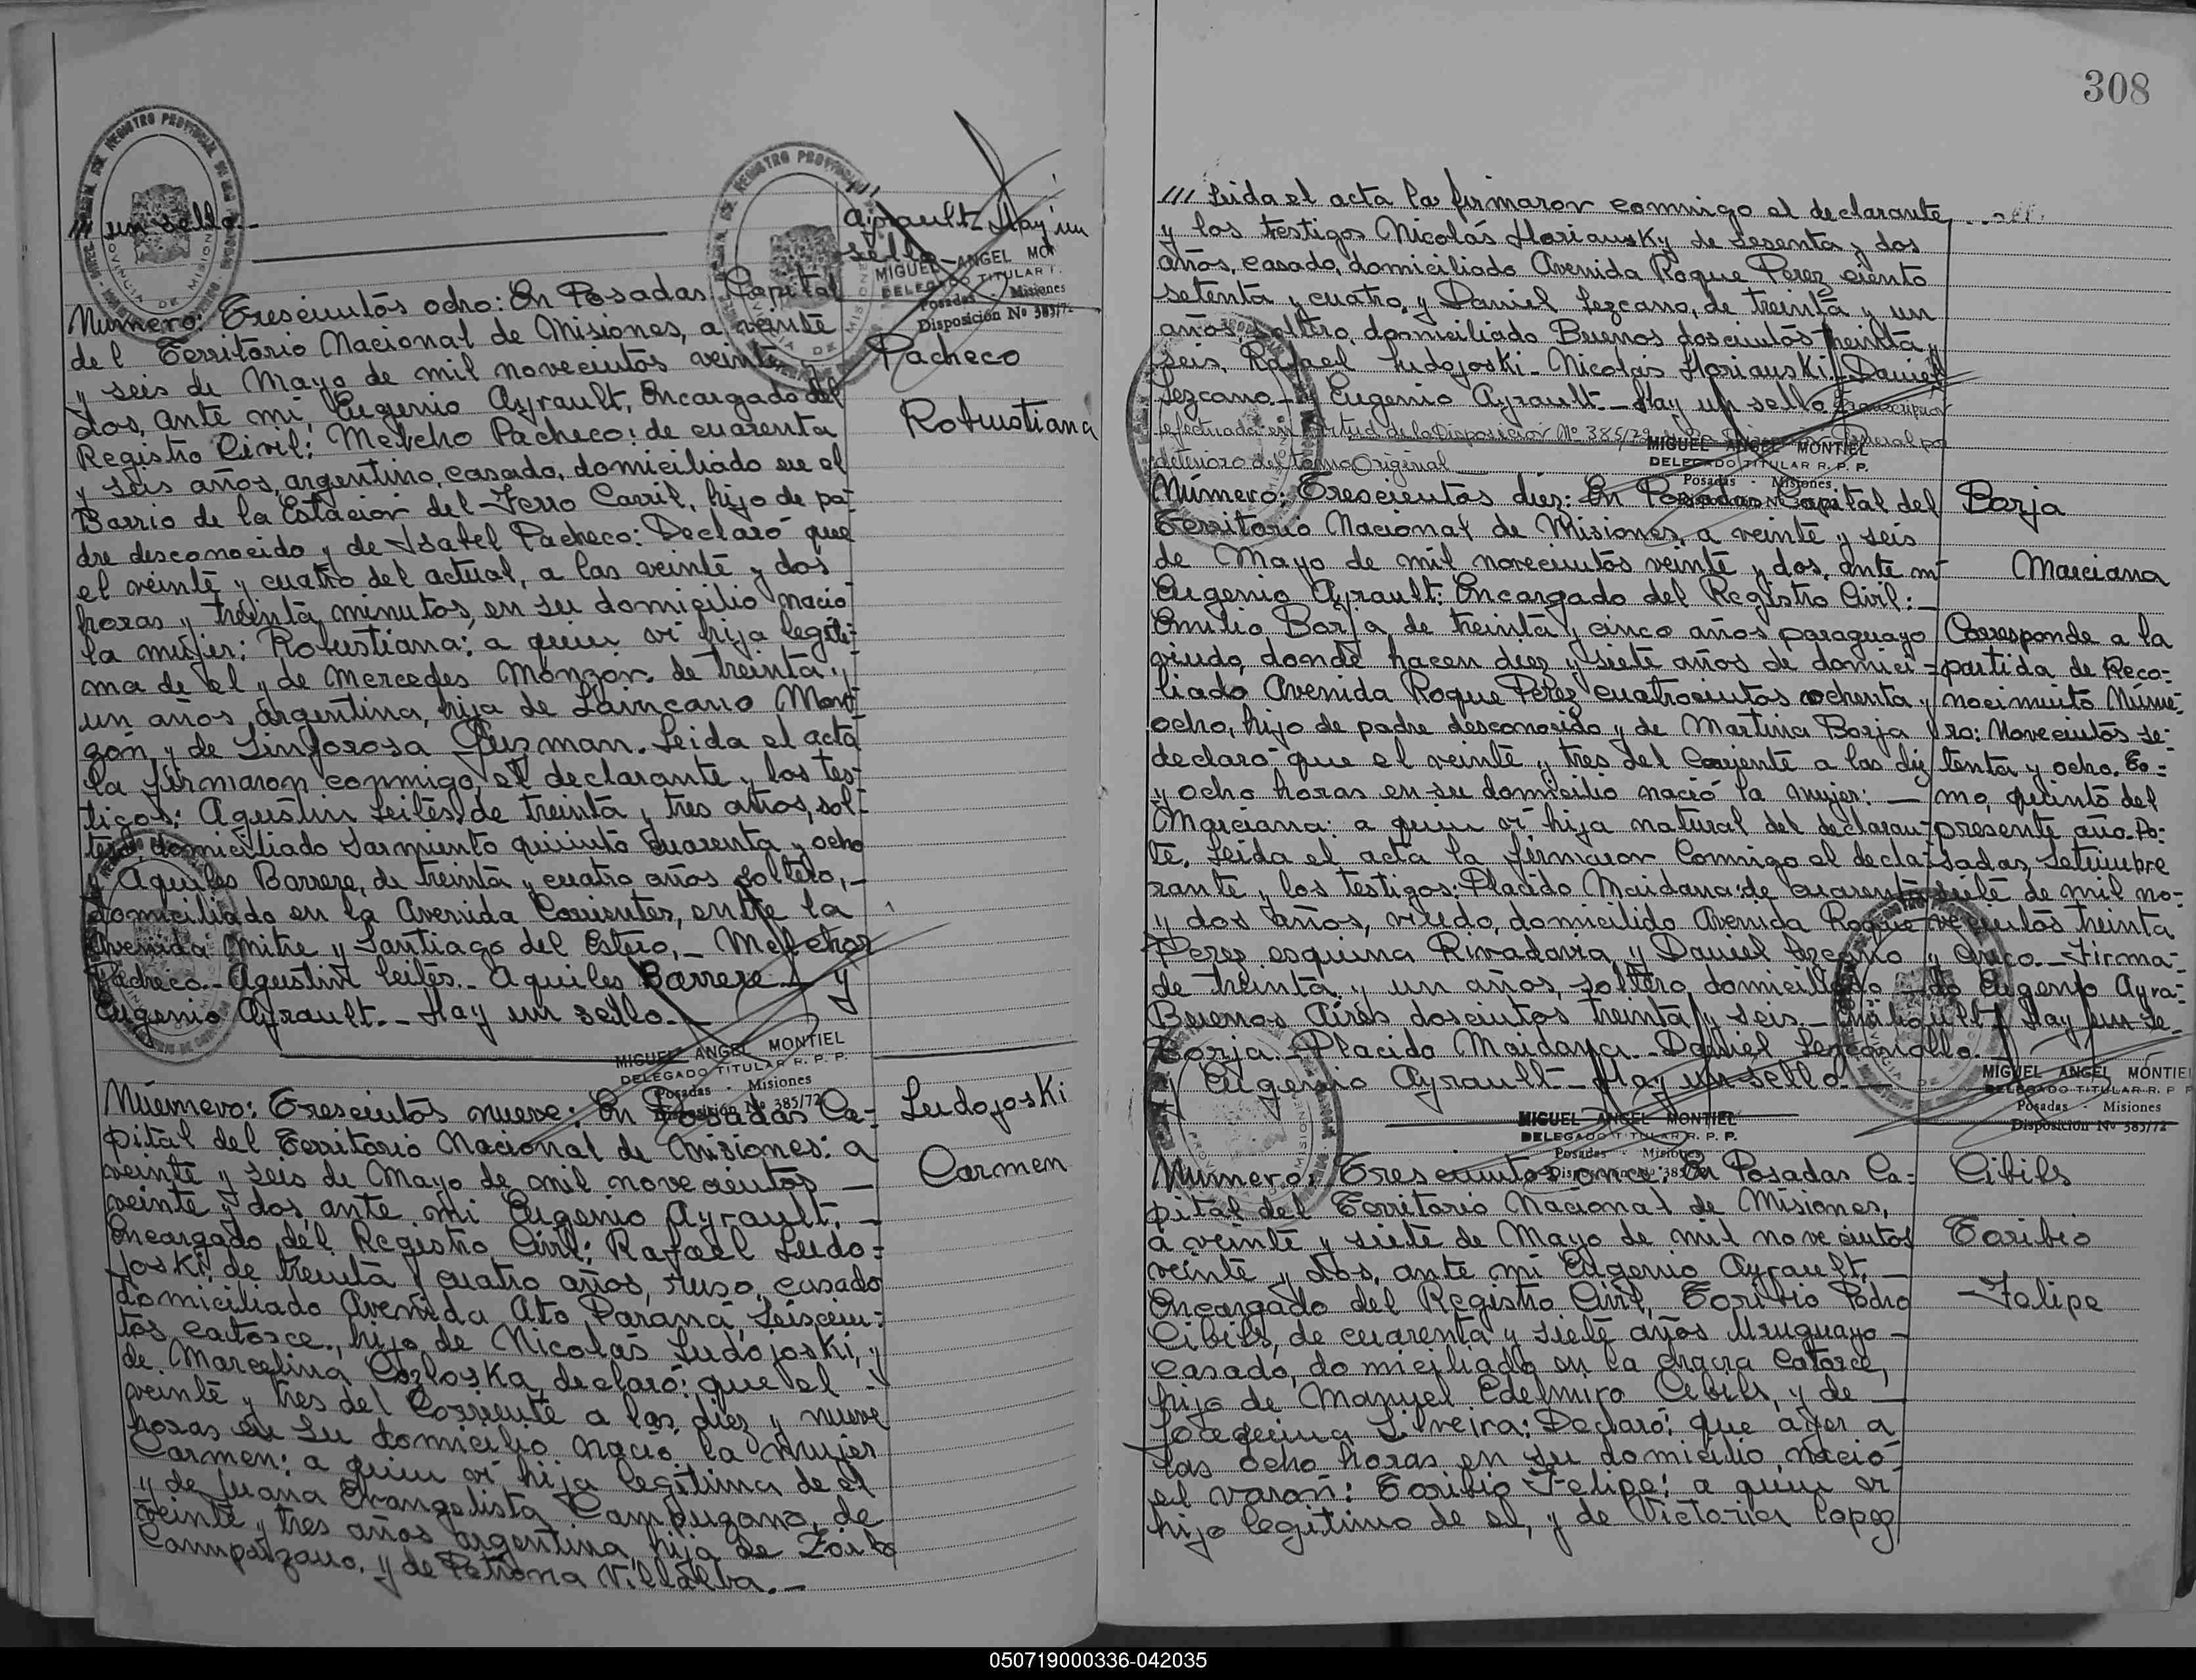 /// un sello.-
///
Ayrault. Hay un
sello.-
MIGUEL ANGEL MON
DELEGADO TITULAR
Posadas Misiones
Disposición Nº 385/72
Número: Trescientos ocho: En Posadas Capital
del Territorio Nacional de Misiones, a veinte
y seis de Mayo de mil novecientos veinte y
dos, ante mi, Eugenio Ayrault, Encargado del
Registro Civil: Melcho Pacheco: de cuarenta
y seis años, argentino, casado, domiciliado en el
Barrio de la Estación del Ferro Carril, hijo de pa-
dre desconocido y de Isabel Pacheco: Declaró que
el veinte y cuatro del actual, a las veinte y dos
horas y treinta minutos, en su domicilio nacio
la mujer: Robustiana: a quien vi hija legiti-
ma de el y de Mercedes Monzon de treinta y
un años, argentina, hija de Laincano Mon-
zón, y de Sinforosa Guzman. Leida el acta
la firmaron conmigo, el declarante y los tes-
tigos: Agustin Leites, de treinta y tres años, sol-
tero domiciliado Sarmiento quiinto cuarenta y ocho
y Aquiles Barrere, de treinta y cuatro años soltero,-
domiciliado en la Avenida Corrientes, entre la
Avenida Mitre y Santiago del Estero,- Melchor
Pacheco.- Agustin Leites.- Aquiles Barrere.- y
Eugenio Ayrault.- Hay un sello.-
Pacheco
Robustiana
MIGUEL ANGEL MONTIEL
DELEGADO TITULAR R. P. P.
Posadas - Misiones
Disposición Nº 385/72
Núemero: Trescientos nueve: En Posadas Ca-
pital del Territorio Nacional de Misiones: a
veinte y seis de Mayo de mil novecientos —
veinte y dos, ante mi Eugenio Ayrault, —
Encargado del Registro Civil: Rafael Ludo-
joski, de treinta y cuatro años, ruso, casado
domiciliado Avenida Ato Paraná, seiscien-
tos catorce, hijo de Nicolás Ludojoski, y
de Marcelina Cozloska, declaró: que el -
veinte y tres del Corriente a las diez y nueve
horas en su domicilio nació la mujer
Carmen: a quien vi hija legitima de el
y de Juana Evangelista Campuzano, de
veinte y tres años argentina, hija de Zoilo
Campuzano, y de Petrona Villalba.-
Ludojoski
Carmen
308
/// Leida el acta la firmaron conmigo el declarante,
y los testigos Nicolás Horiansky de sesenta y dos
años, casado, domiciliado Avenida Roque Perez ciento
setenta y cuatro, y Daniel Lezcano, de treinta y un
años, soltero, domiciliado Buenos doscientos treinta y
seis, Rafael Ludojoski.- Nicolás Horianski.- Daniel
Lezcano.- Eugenio Ayrault.- Hay un sello Transcripcion
efectuada en virtud de la Disposición Nº 385/72 General por
deterioro del tomo Original
MIGUEL ANGEL MONTIEL
DELEGADO TITULAR R. P. P.
Posadas - Misiones
Número: Trescientos diez: En Posadas Capital del
Territorio Nacional de Misiones, a veinte y seis
de Mayo de mil novecientos veinte y dos, ante mi
Eugenio Ayrault: Encargado del Registro Civil:-
Emilio Borja, de treinta y cinco años paraguayo
viudo, donde hacen diez y siete años de domici-
liado Avenida Roque Perez cuatrocientos ochenta y
ocho, hijo de padre desconocido y de Martina Borja
declaró que el veinte y tres del Corriente a las diz
y ocho horas en su domicilio nació la mujer: —
Marciana: a quien vi hija natural del declaran-
te. Leida el acta la firmaron Conmigo el decla-
rante y los testigos: Placido Maidana: de cuarenta
y dos años, viudo, domicilido Avenida Roque
Perez esquina Rivadavia y Daniel Lezcano
de treinta y un años, soltero, domiciliado
Buenos Aires doscientos treinta y seis.-
Borja.- Placido Maidana.- Daniel Lezcano
y Eugenio Ayrault.- Hay un sello.-
Borja
Marciana
Corresponde a la
partida de Reco-
nocimiento Núme-
ro: Novecientos se-
tenta y ocho. To-
mo, quinto del
presente año. Po-
sadas, Setiembre
siete de mil no-
vecientos treinta
y cinco.- Firma-
do Eugenio Ayra-
ult. Hay un se-
llo.-
MIGUEL ANGEL MONTIEL
DELEGADO TITULAR R. P. P.
Posadas - Misiones
Disposición Nº 385/72
MIGUEL ANGEL MONTIEL
DELEGADO TITULAR R. P. P.
Posadas - Misiones
Disposición Nº 385/72
Número: Trescientos once: En Posadas Ca-
pital del Territorio Nacional de Misiones,
a veinte y siete de Mayo de mil novecientos
veinte y dos, ante mi Eugenio Ayrault, —
Encargado del Registro Civil, Toribio Pedro
Cibils, de cuarenta y siete años Uruguayo -
casado, domiciliado en la chacra Catorce,
hijo de Manuel Edelmiro Cibils, y de —
Joaquina Silveira: Declaró: que ayer a
las ocho horas en su domicilio, nació
el varón: Toribio Felipe: a quien vi
hijo legitimo de el, y de Victoria Lopez
Cibils
Toribio
-Felipe
050719000336-042035